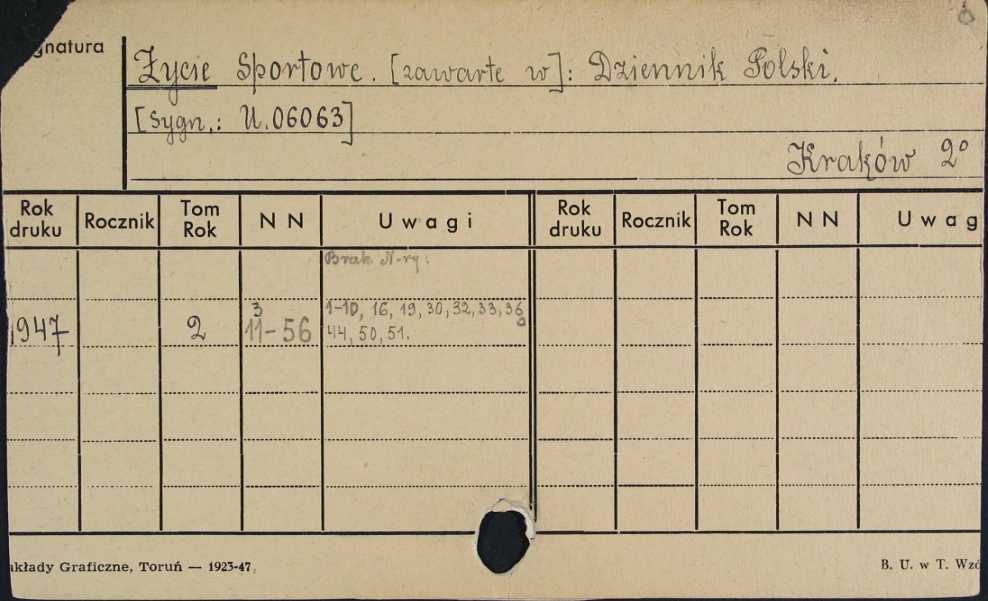 gnatura
Życie Sportowe. [zawarte w]: Dziennik Polski.
[Sygn.: U.06063]
Kraków 2°
Rok druku Rocznik Tom Rok N N Uwagi Rok druku Rocznik Tom Rok N N Uwag
Brak N-ry:
3 1-10, 16, 19, 30, 32, 33, 36
1947 2 11-56 44, 50, 51.
akłady Graficzne, Toruń — 1923-47. B. U. w T. Wzó